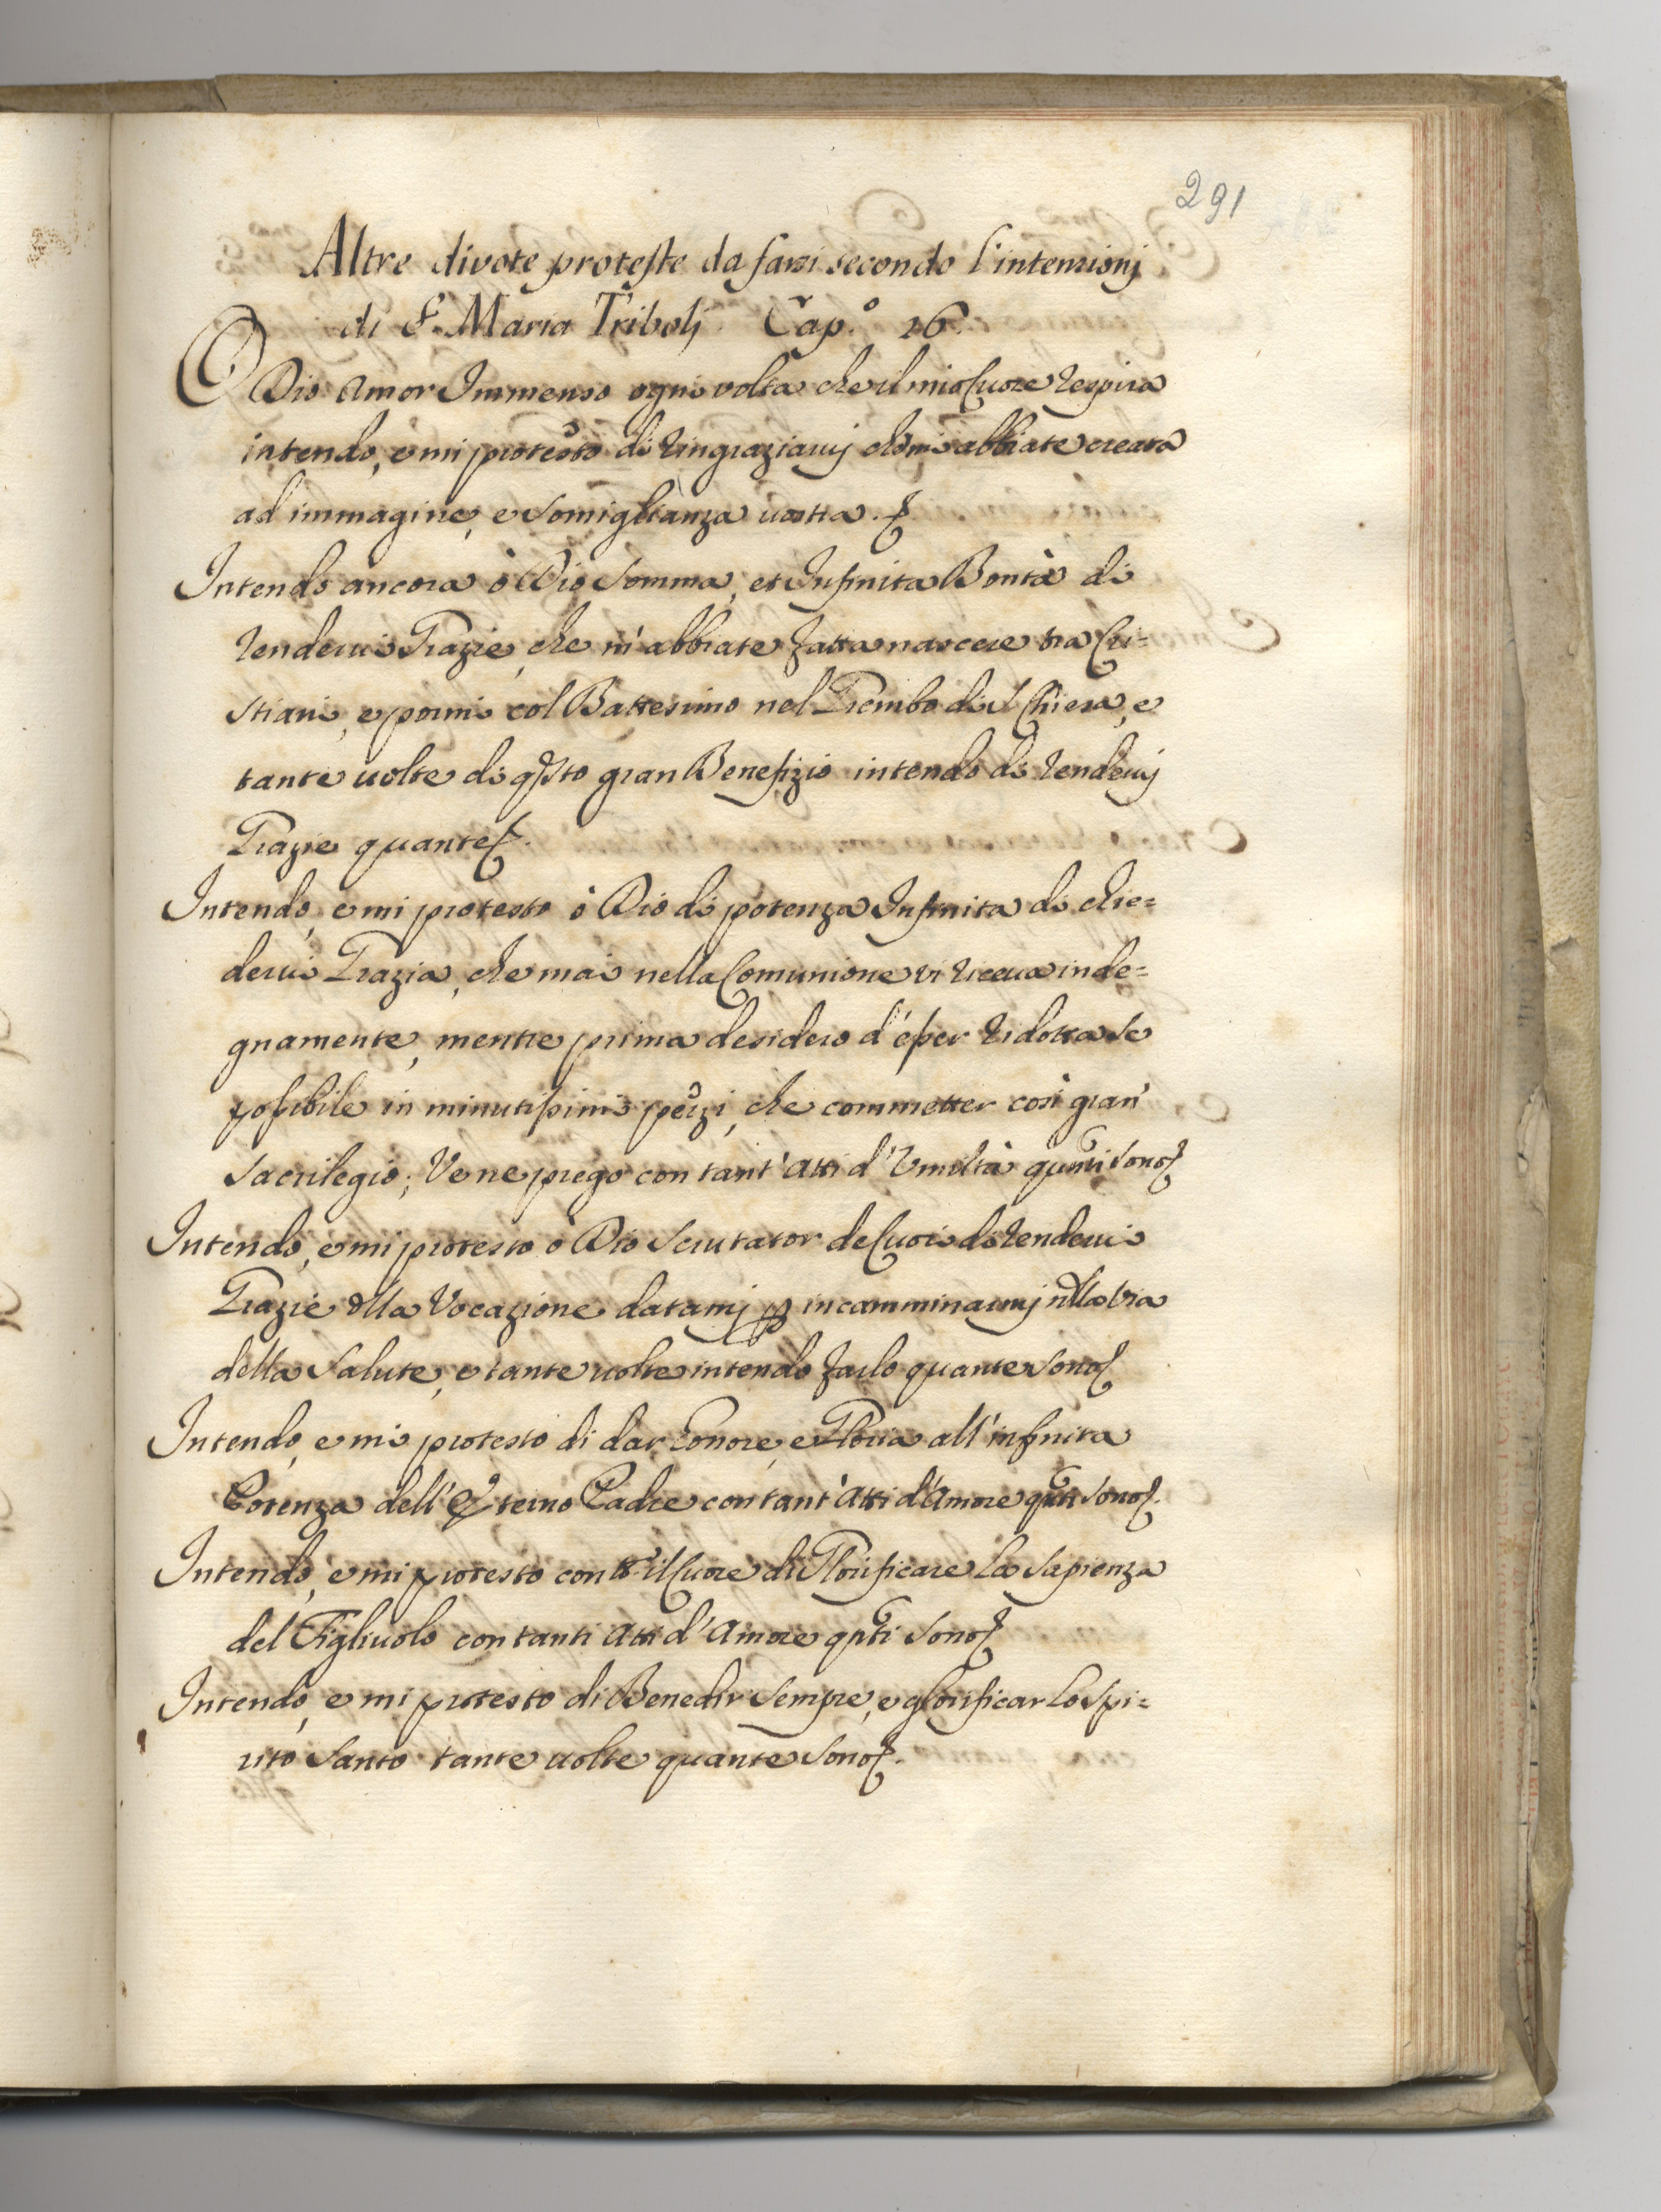 291
Altre divote proteste da farsi secondo l'intenzionj
di S. Maria Tribolj Cap.º 16.
O Dio Amor Immenso ogni volta che il mio Cuore respira
intendo, e mi protesto di ringraziaruj che mi abbiate creata
ad immagine, e somiglianza uostra.
Intendo ancora ò Dio somma, et Infinita Bontà di
renderui Grazie, che m'abbiate fatta nascere tra Cri=
stiani, e pormi col Battesimo nel Grembo di S. Chiesa, e
tante uolte di qsto gran Benefizio intendo di renderuj
Grazie quante
Intendo, e mi protesto ò Dio di potenza Infinita di chie=
derui Grazia, che mai nella Comunione vi riceua inde=
gnamente, mentre prima desidero d'esser ridotta se
possibile in minutissimi pezzi, che commetter così gran
sacrilegio; Ve ne prego con tant'atti d'Vmiltà quanti sono
Intendo, e mi protesto ò Dio scrutator de Cuori di renderui
Grazie della Vocazione datamj p incamminarmj nella via
della salute, e tante uolte intendo farlo quante sono
Intendo, e mi protesto di dar honore, e Gloria all'infinita
Potenza dell'Eterno Padre con tant'atti d'Amore qnti sono
Intendo, e mi protesto con tt.º il Cuore di Glorificare la sapienza
del Figliuolo con tanti atti d'Amore qnti sono
Intendo, e mi protesto di Benedir sempre, e glorificar lo spi=
rito santo tante uolte quante sono